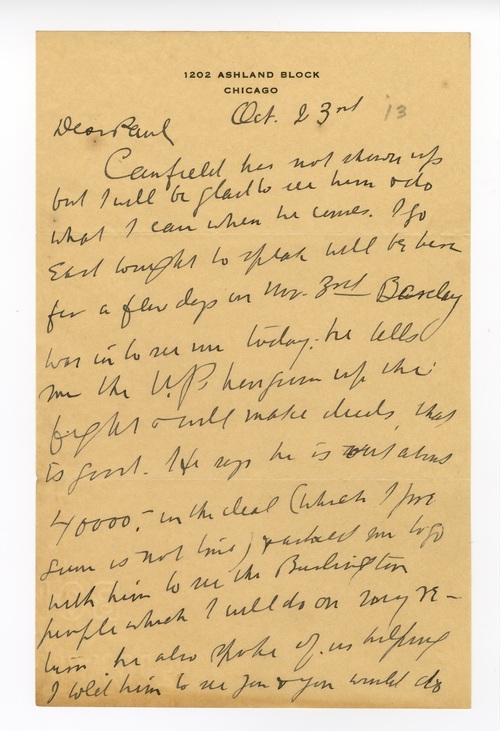 1202 ASHLAND BLOCK
CHICAGO
Oct. 23rd 13
Dear Paul
Canfield has not shown up
but I will be glad to see him & do
what I can when he comes. I go
East tonight to speak will be here
for a few days on Nov. 3rd Barclay
was in to see me today. he tells
me the U.P's have given up the
fight & will make deeds, that
is good. He says he is out about
40000.- in the deal (which I pre
sume is not true) & asked me to go
with him to see the Burlington
people which I will do on my re-
turn he also spoke of us helping
I told him to see you & you would do